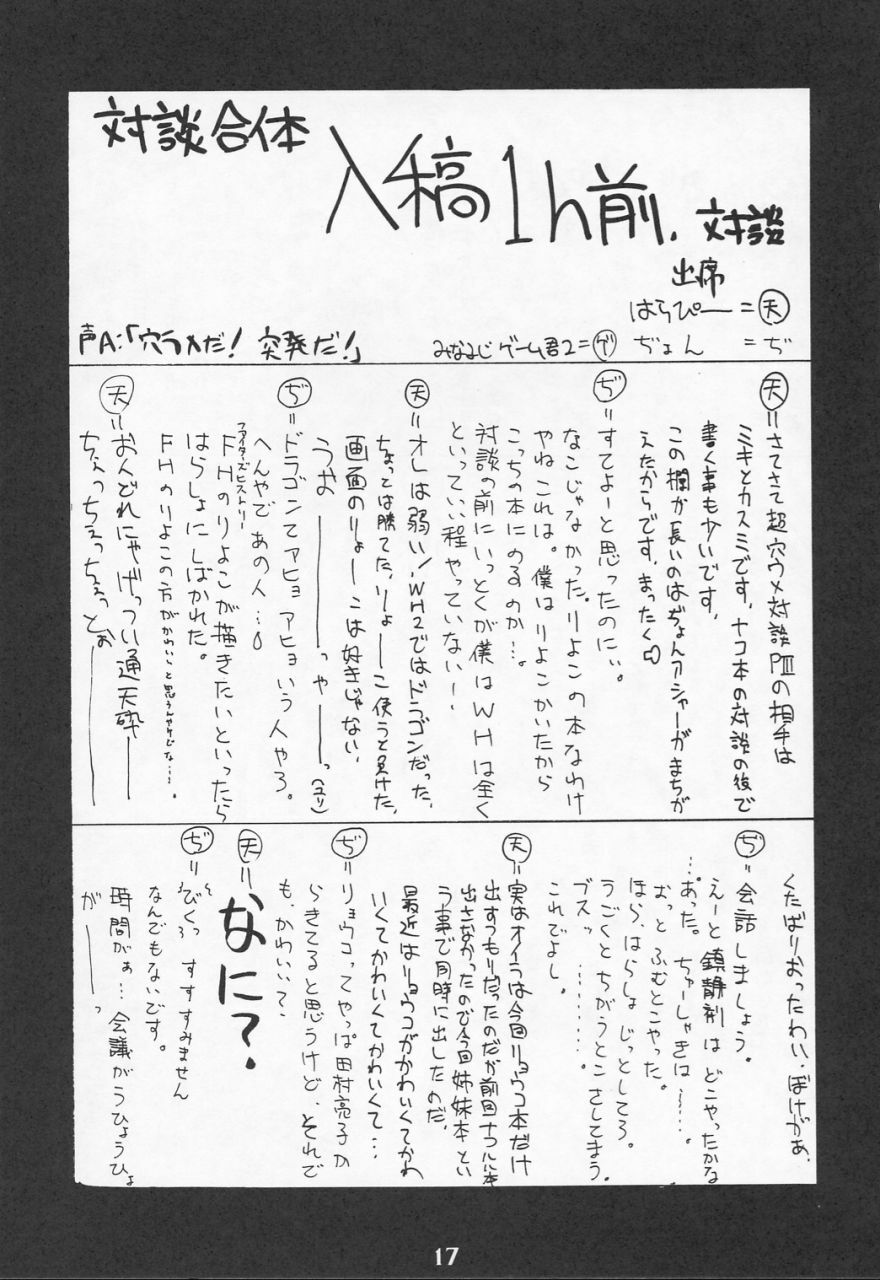 対談合体
入稿1h前.対談
出席
はらぴー=天
ぢょん =ぢ
みなみじゲーム君2=ゲ
声A:「穴ウメだ!突発だ!」
天=さてさて超穴ウメ対談PⅢの相手は
ミキとカスミです、ナコ本の対談の後で
書く事も少いです、
この欄が長いのはぢょんアシャーがまちが
えたからです、まったく
ぢ=すてよーと思ったのに、、
なこじゃなかった、りよこの本なわけ
やねこれは。僕はりよこかいたから
こっちの本にのるのか…。
対談の前にいっとくが僕はWHは全く
といっていい程やっていないー、
天=オレは弱い!、WH2ではドラゴンだった、
ちょっとは勝てた、りょーこ使うと負けた、
画面のりょーこは好きじゃない、
うおーーっやーーっ(ユリ)
ぢ=ドラゴンてアヒョアヒョいう人やろ。
へんやであの人…。
ファイターズヒストリー
FHのりよこが描きたいといったら
はらしょにしばかれた。
FHのりよこの方がかわいいと思うんやけどな…。
天=おんどれにゃげっつい通天砕ーー
ちぇっちぇっちぇっとぉーーー
くたばりおったわい、ぼけがぁ、
ぢ=会話しましょう。
えーと鎮静剤はどこやったかな
…あった。ちゅーしゃきは……。
おっとふむとこやった。
ほら、はらしょじっとしてろ。
うごくとちがうとこさしてまう。
ブスッ………。
これでよし。
天=実はオイラは今回リョウコ本だけ
出すつもりだったのだが前回ナコルル本
出さなかったので今回姉妹本とい
う事で同時に出したのだ、
最近はリョウコがかわいくてかわ
いくてかわいくてかわいくて…
ぢ=リョウコってやっぱ田村亮子か
らきてると思うけど、それで
も、かわいい?、
天=なに?、
ぢ=びくっすすすみません
なんでもないです。
時間がぁ…会議がうひょうひょ
がーーっ
17